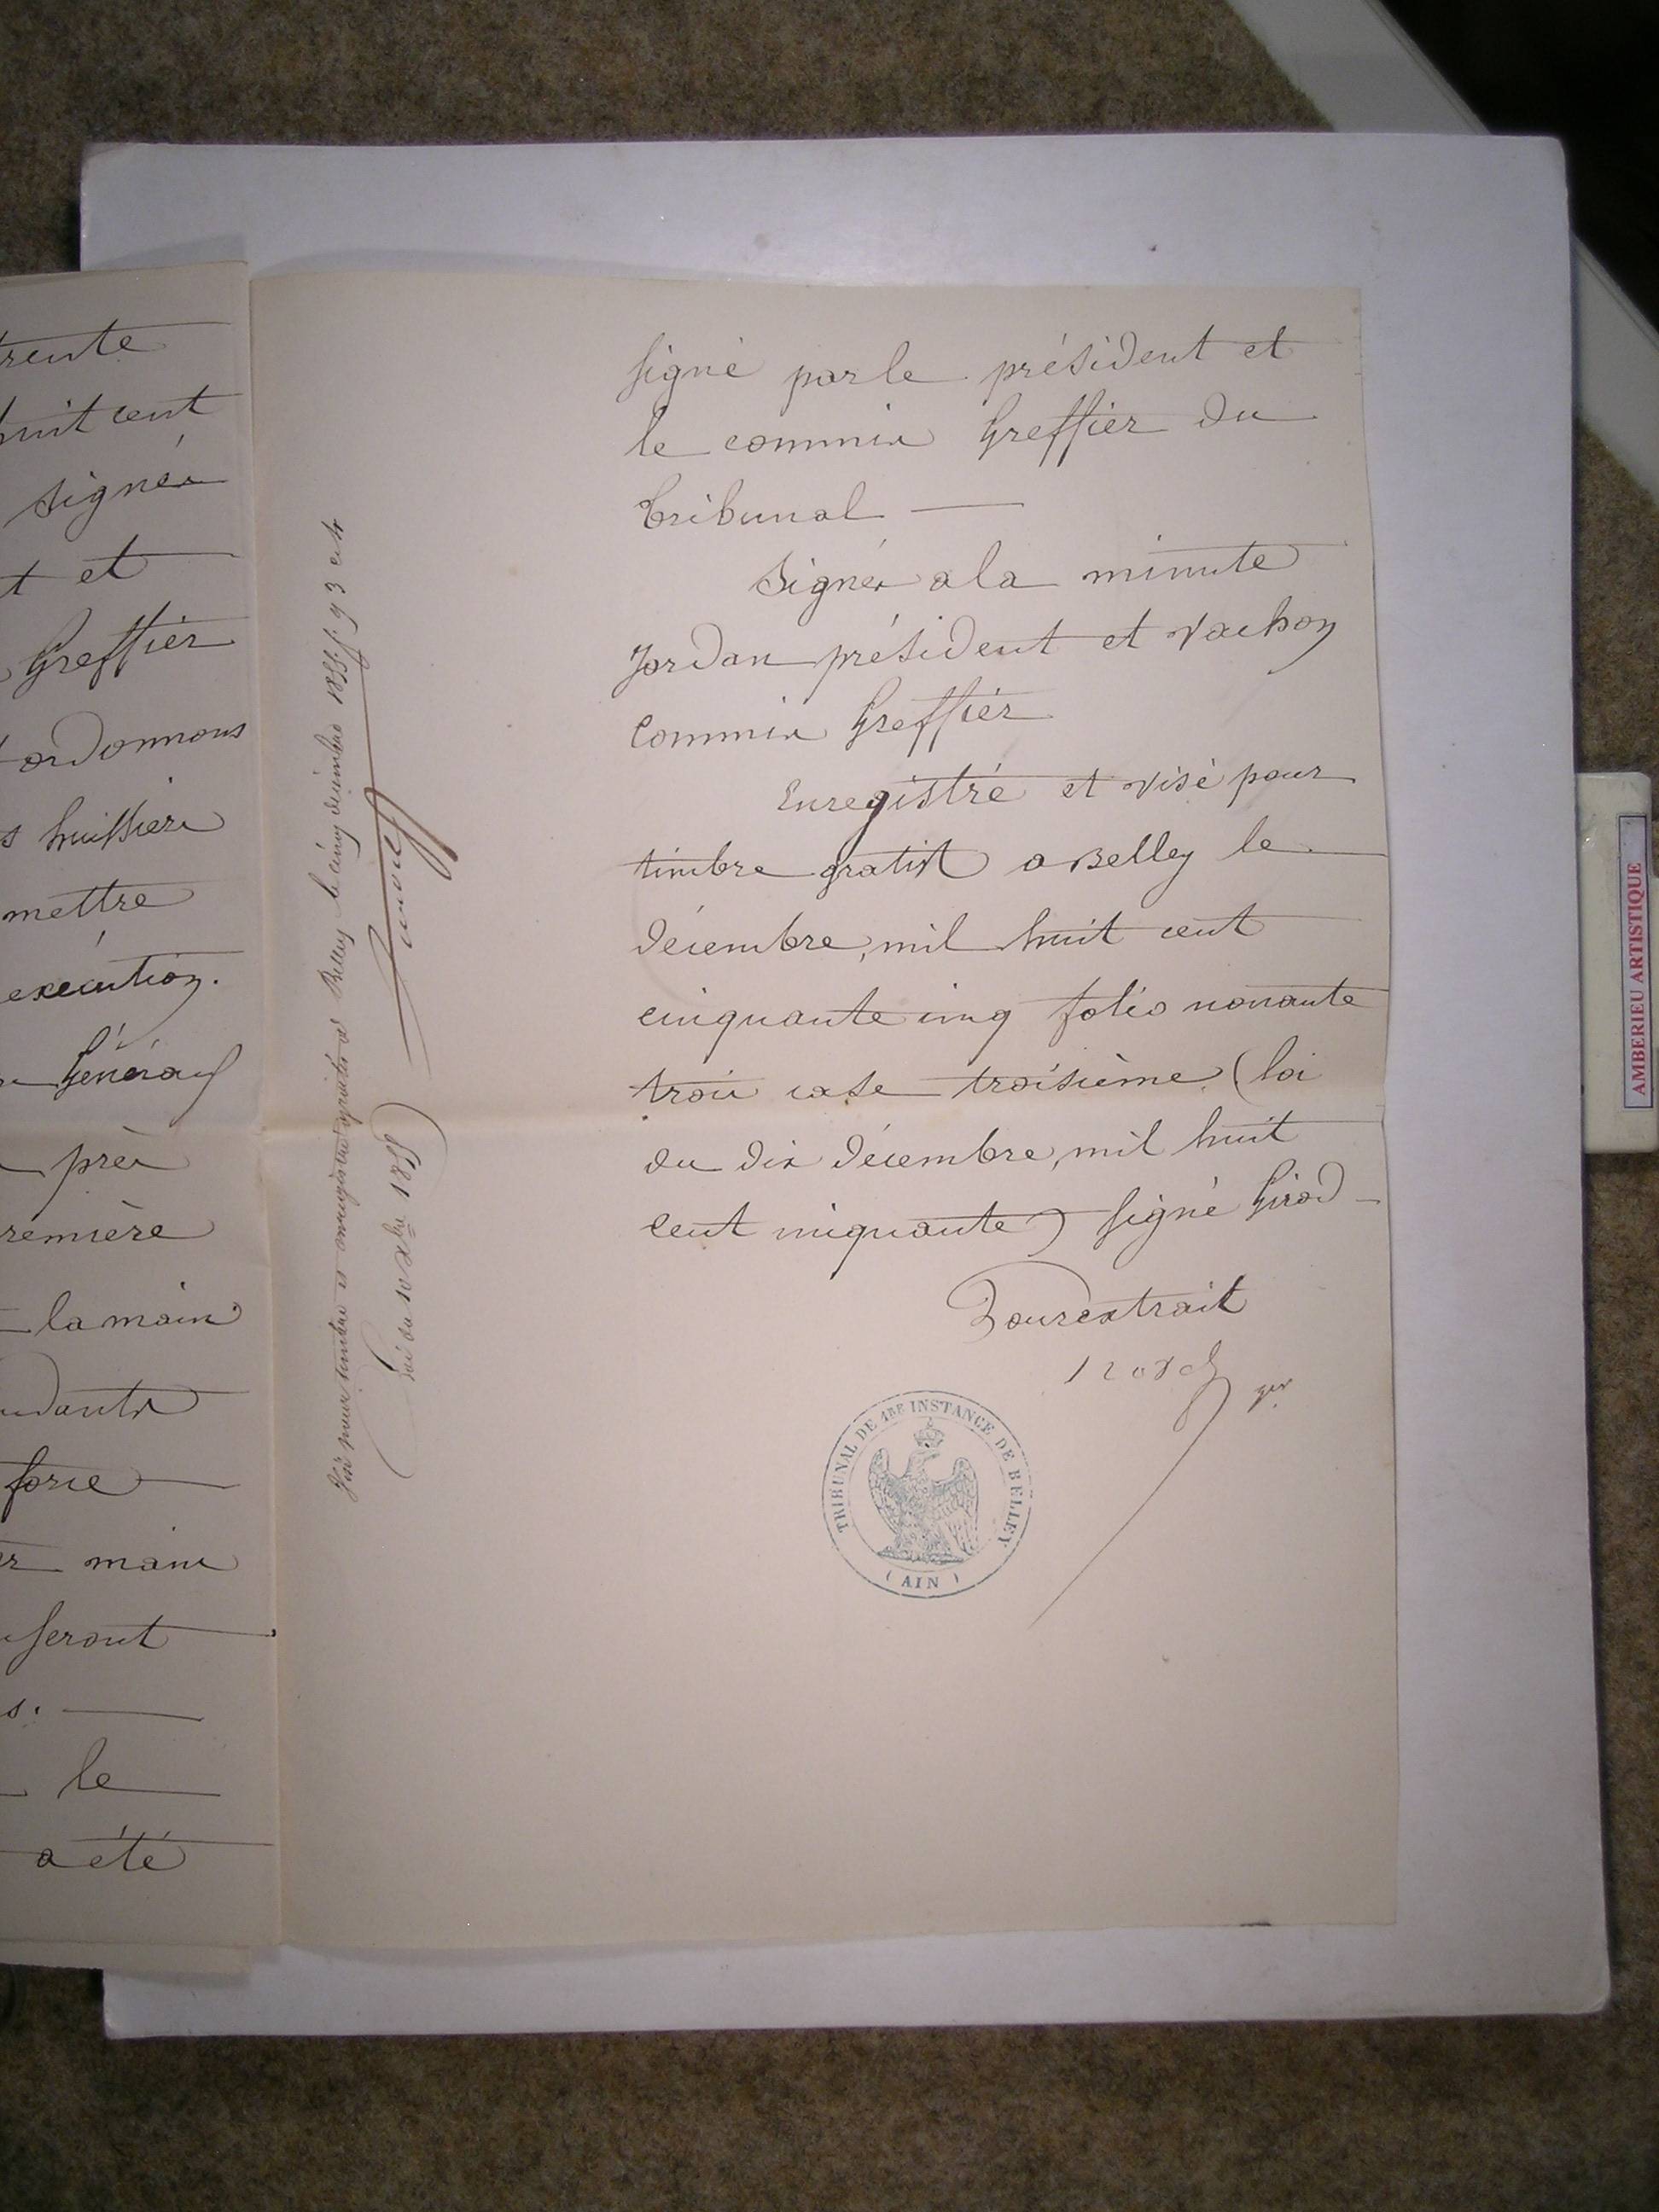 trente
huit cent
signés
t et
Greffier
ordonnons
s huissiers
mettre
execution.
Généraux
près
remière
la main
udants
force
main
seront
s.
le
a été
Visé pour timbre et enregistré gratis à Belley le cinq décembre 1855 f. 93 c. 4
(Loi du 10 Xbre 1850)
signé par le président et
le commis Greffier du
tribunal
Signés a la minute
Jordan président et Vachon
commis Greffier
Enregistré et visé pour
timbre gratis a Belley le
décembre, mil huit cent
cinquante cinq folio nonante
trois case troisième (loi
du dix décembre, mil huit
cent cinquante) signé Girod
Pour extrait
TRIBUNAL DE 1RE INSTANCE DE BELLEY
(AIN)
AMBERIEU ARTISTIQUE